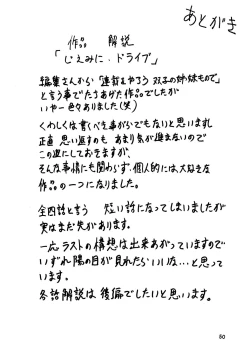 あとがき
作品 解説
「じぇみに・ドライブ」
編集さんから「連載をやろう 双子の姉妹もので」
と言う事で立ちあがった作品でしたが
いやー色々ありました(笑)
くわしくは書くべき事がらでもないと思いますし
正直 思い返すのも あまり気が進まないので
この辺にしておきますが、
そんな事情にも関わらず、個人的には大好きな
作品の一つになりました。
全四話と言う 短い話になってしまいましたが
実はまだ先があります。
一応、ラストの構想は出来あがっていますので
いずれ陽の目が見れたらいいな…と思って
います。
各話解説は 後編でしたいと思います。
80